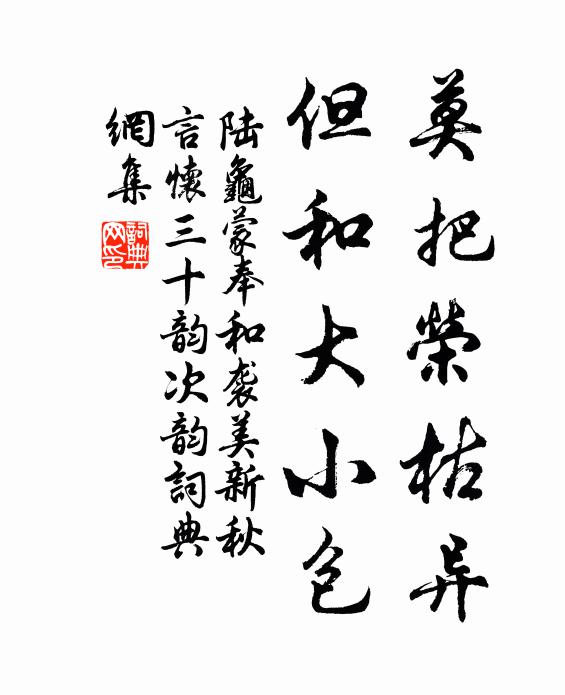 莫把榮枯异
但和大小包
陆龜蒙奉和袭美新秋
言懷三十韵次韵詞典
網集
詞典网印